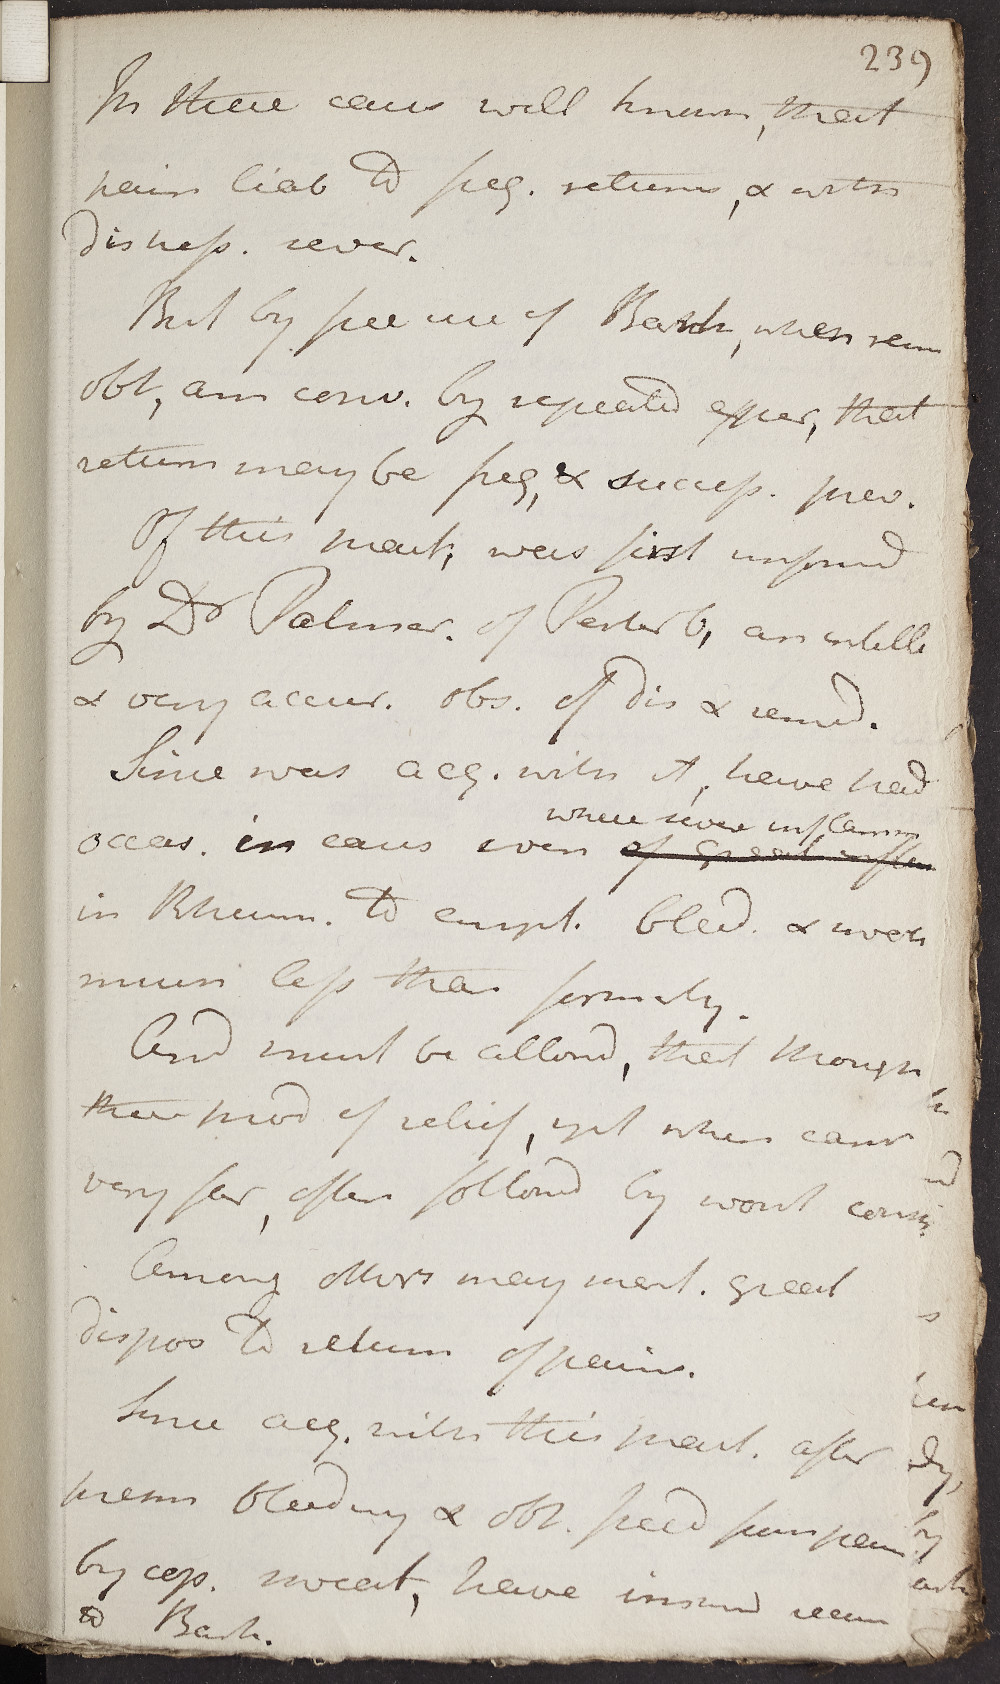 239
In these cases well known, that
pain liab to freq. returns, & with
distress. sever.
But by free use of Bark, when rem
obt, am conv. by repeated exper, that
return may be freq, & success. prev.
Of this pract, was first inford
by Dr Palmer. of Peterb, an intelli
& very accur. obs. of dis & remed.
Since was acq. with it, have had
where sever inflamm
occas. in cases even of great inflam
in Rheum. to empt. bleed. & swea
much less than formerly.
And must be allowd, that though
these mod of relief, yet when carr
very far, often followd by worst cons
Among others may ment. great
dispos to return of pains.
Since acq. with this pract. after
prem bleeding & obt. freed from pain
by cop. sweat, have instead recur
to Bark.